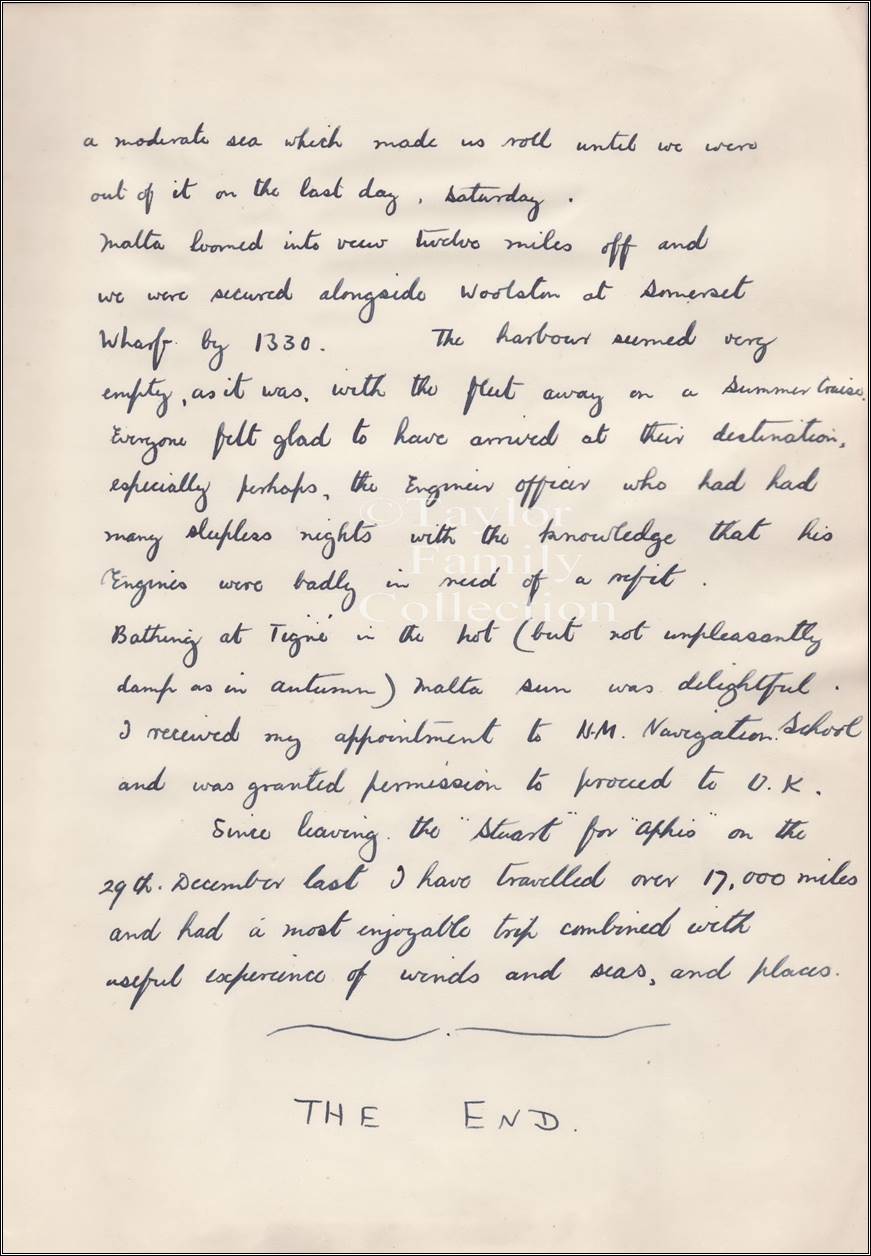 a moderate sea which made us roll until we were
out of it on the last day, Saturday.
Malta loomed into veiw twelve miles off and
we were secured alongside Woolston at Somerset
Wharf by 1330. The harbour seemed very
empty, as it was, with the fleet away on a Summer Cruise.
Everyone felt glad to have arrived at their destination,
especially perhaps, the Engineer officer who had had
many sleepless nights with the knowledge that his
Engines were badly in need of a refit.
Bathing at Tigné in the hot (but not unpleasantly
damp as in autumn) Malta sun was delightful.
I received my appointment to H.M. Navigation School
and was granted permission to proceed to U.K.
Since leaving the "Stuart" for "Aphis" on the
29th. December last I have travelled over 17,000 miles
and had a most enjoyable trip combined with
useful experience of winds and seas, and places.
THE END.
©Taylor
Family
Collection